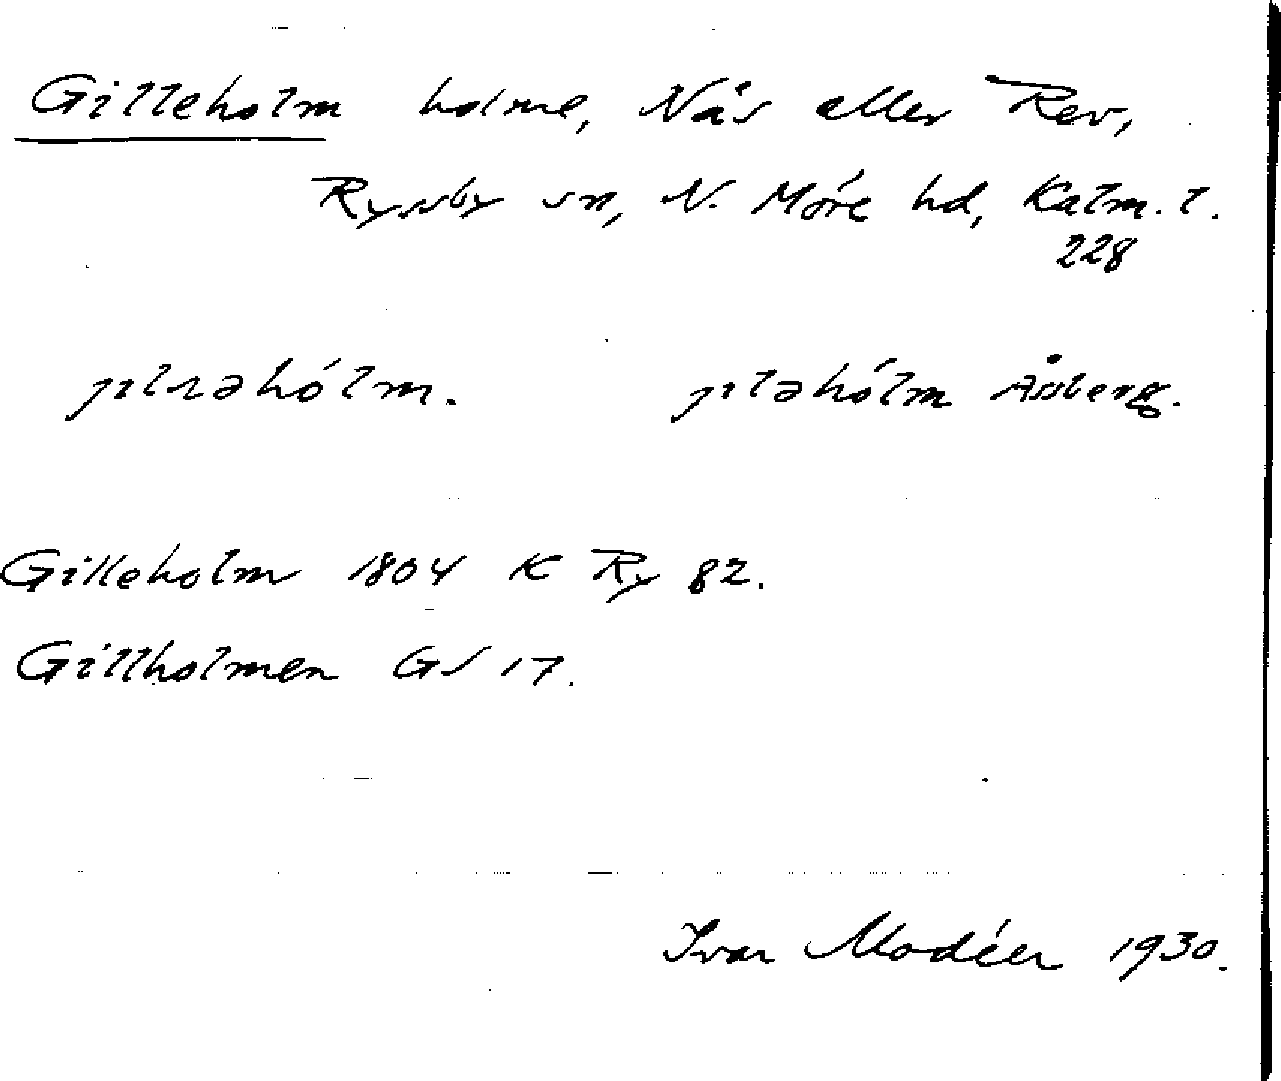 Gilleholm holme, Näs eller Rev,
Ryssby sn, N. Möre hd, Kalm. l.
228
Åssberg.
Gilleholm 1804 K Ry 82.
Gillholmen GS 17.
Ivar Modéer 1930.